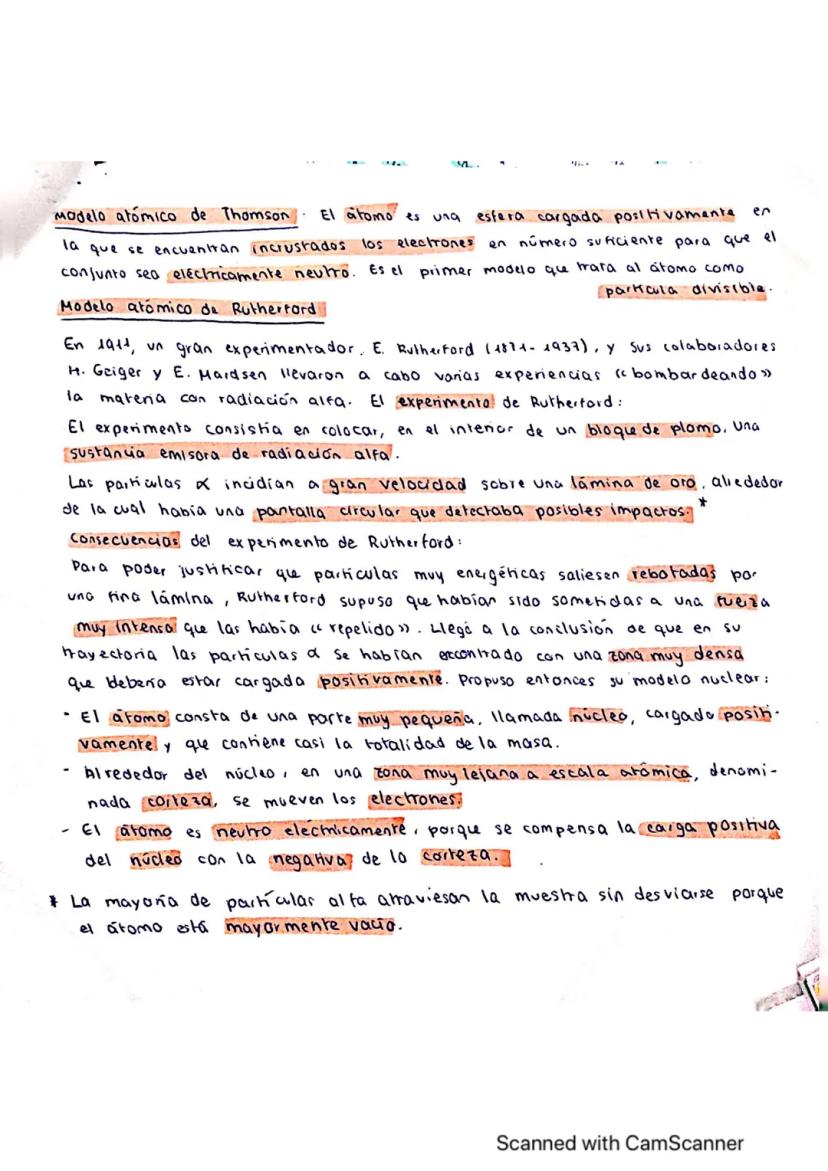 Modelo atómico de Thomson. El átomo es una esfera cargada positivamente en
la que se encuentran incrustados los electrones en número suficiente para que el
conjunto sea eléctricamente neutro. Es el primer modelo que trata al átomo como
partícula divisible.
Modelo atómico de Rutherford
En 1911, un gran experimentador, E. Rutherford (1871-1937), y sus colaboradores
H. Geiger y E. Mardsen llevaron a cabo varias experiencias «bombardeando»
la materia con radiación alfa. El experimento de Rutherford:
El experimento consistía en colocar, en el interior de un bloque de plomo, una
sustancia emisora de radiación alfa.
Las partículas α incidían a gran velocidad sobre una lámina de oro, alrededor
de la cual había una pantalla circular que detectaba posibles impactos. *
Consecuencias del experimento de Rutherford:
Para poder justificar que partículas muy energéticas saliesen rebotadas por
una fina lámina, Rutherford supuso que habían sido sometidas a una fuerza
muy intensa que las había «repelido». Llegó a la conclusión de que en su
trayectoria las partículas α se habían encontrado con una zona muy densa
que debería estar cargada positivamente. Propuso entonces su modelo nuclear:
- El átomo consta de una parte muy pequeña, llamada núcleo, cargado positi-
vamente y que contiene casi la totalidad de la masa.
- Alrededor del núcleo, en una zona muy lejana a escala atómica, denomi-
nada corteza, se mueven los electrones.
- El átomo es neutro eléctricamente, porque se compensa la carga positiva
del núcleo con la negativa de la corteza.
* La mayoría de partículas alfa atraviesan la muestra sin desviarse porque
el átomo está mayormente vacío.
Scanned with CamScanner